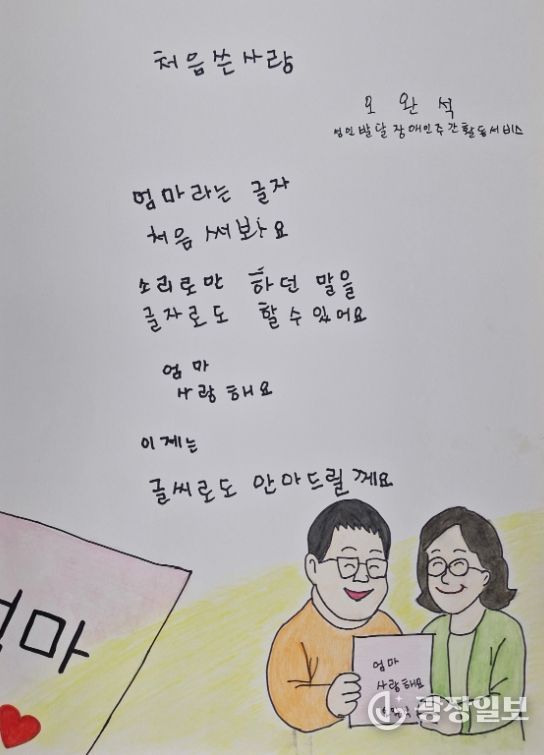 처음 쓴 사랑
오 완 석
성인발달장애인주간활동서비스
엄마라는 글자
처음 써봐요
소리로만 하던 말을
글자로도 할 수 있어요
엄마
사랑해요
이제는
글씨로도 안마드릴께요
엄마
엄마
사랑해요
광장일보